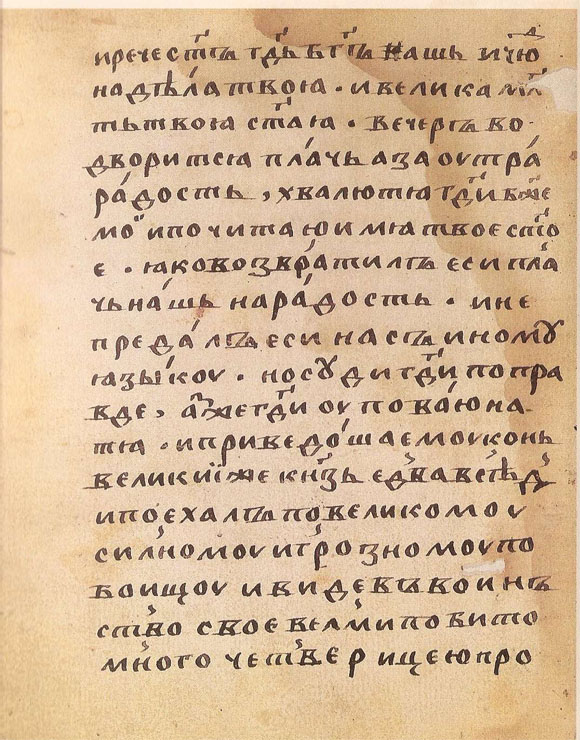 и рече ст҃ъ гд҃ь бг҃ъ нашь и чю
на дѣла твоꙗ · и велика мл҃
ть твоꙗ ст҃аꙗ · вечеръ во
дворитсꙗ пла́чь а заоутра
ра́дость , хвалю тꙗ гд҃и бж҃е
мои и почитаю имꙗ твое ст҃о
е · ꙗко возврати́лъ еси пла́
чь на́шь на ра́дость · и не
преда́лъ еси насъ иному
ꙗзы́коу · но суди гд҃и по пра
вде , азже гд҃и оупова́ю на
тꙗ · и приведо́ша емоу конь
великиї же кн҃зь едва вслѣд
и поехалъ по великомоу
силномоу и грозномоу по
боищоу и видевъ воинъ
ство свое велми повито
много четверицею про